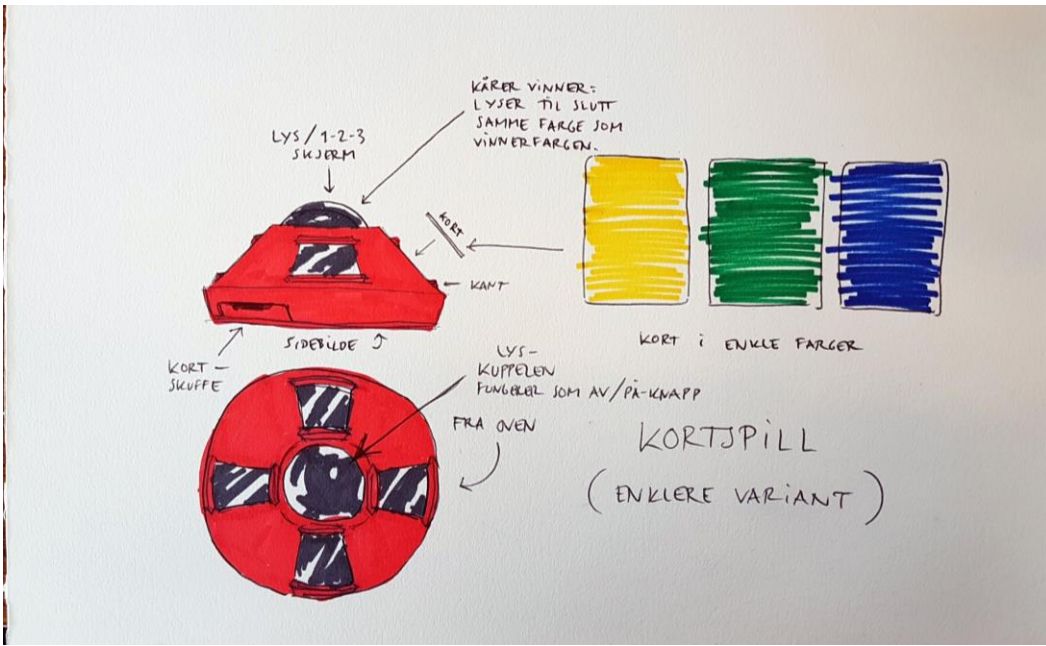 KÅRER VINNER:
LYSER TIL SLUTT
SAMME FARGE SOM
VINNERFARGEN.
LYS/1-2-3
SKJERM
KORT
KANT
SIDEBILDE
KORT-
SKUFFE
KORT i ENKLE FARGER
LYS-
KUPPELEN
FUNGERER SOM AV/PÅ-KNAPP
FRA OVEN
KORTSPILL
(ENKLERE VARIANT)